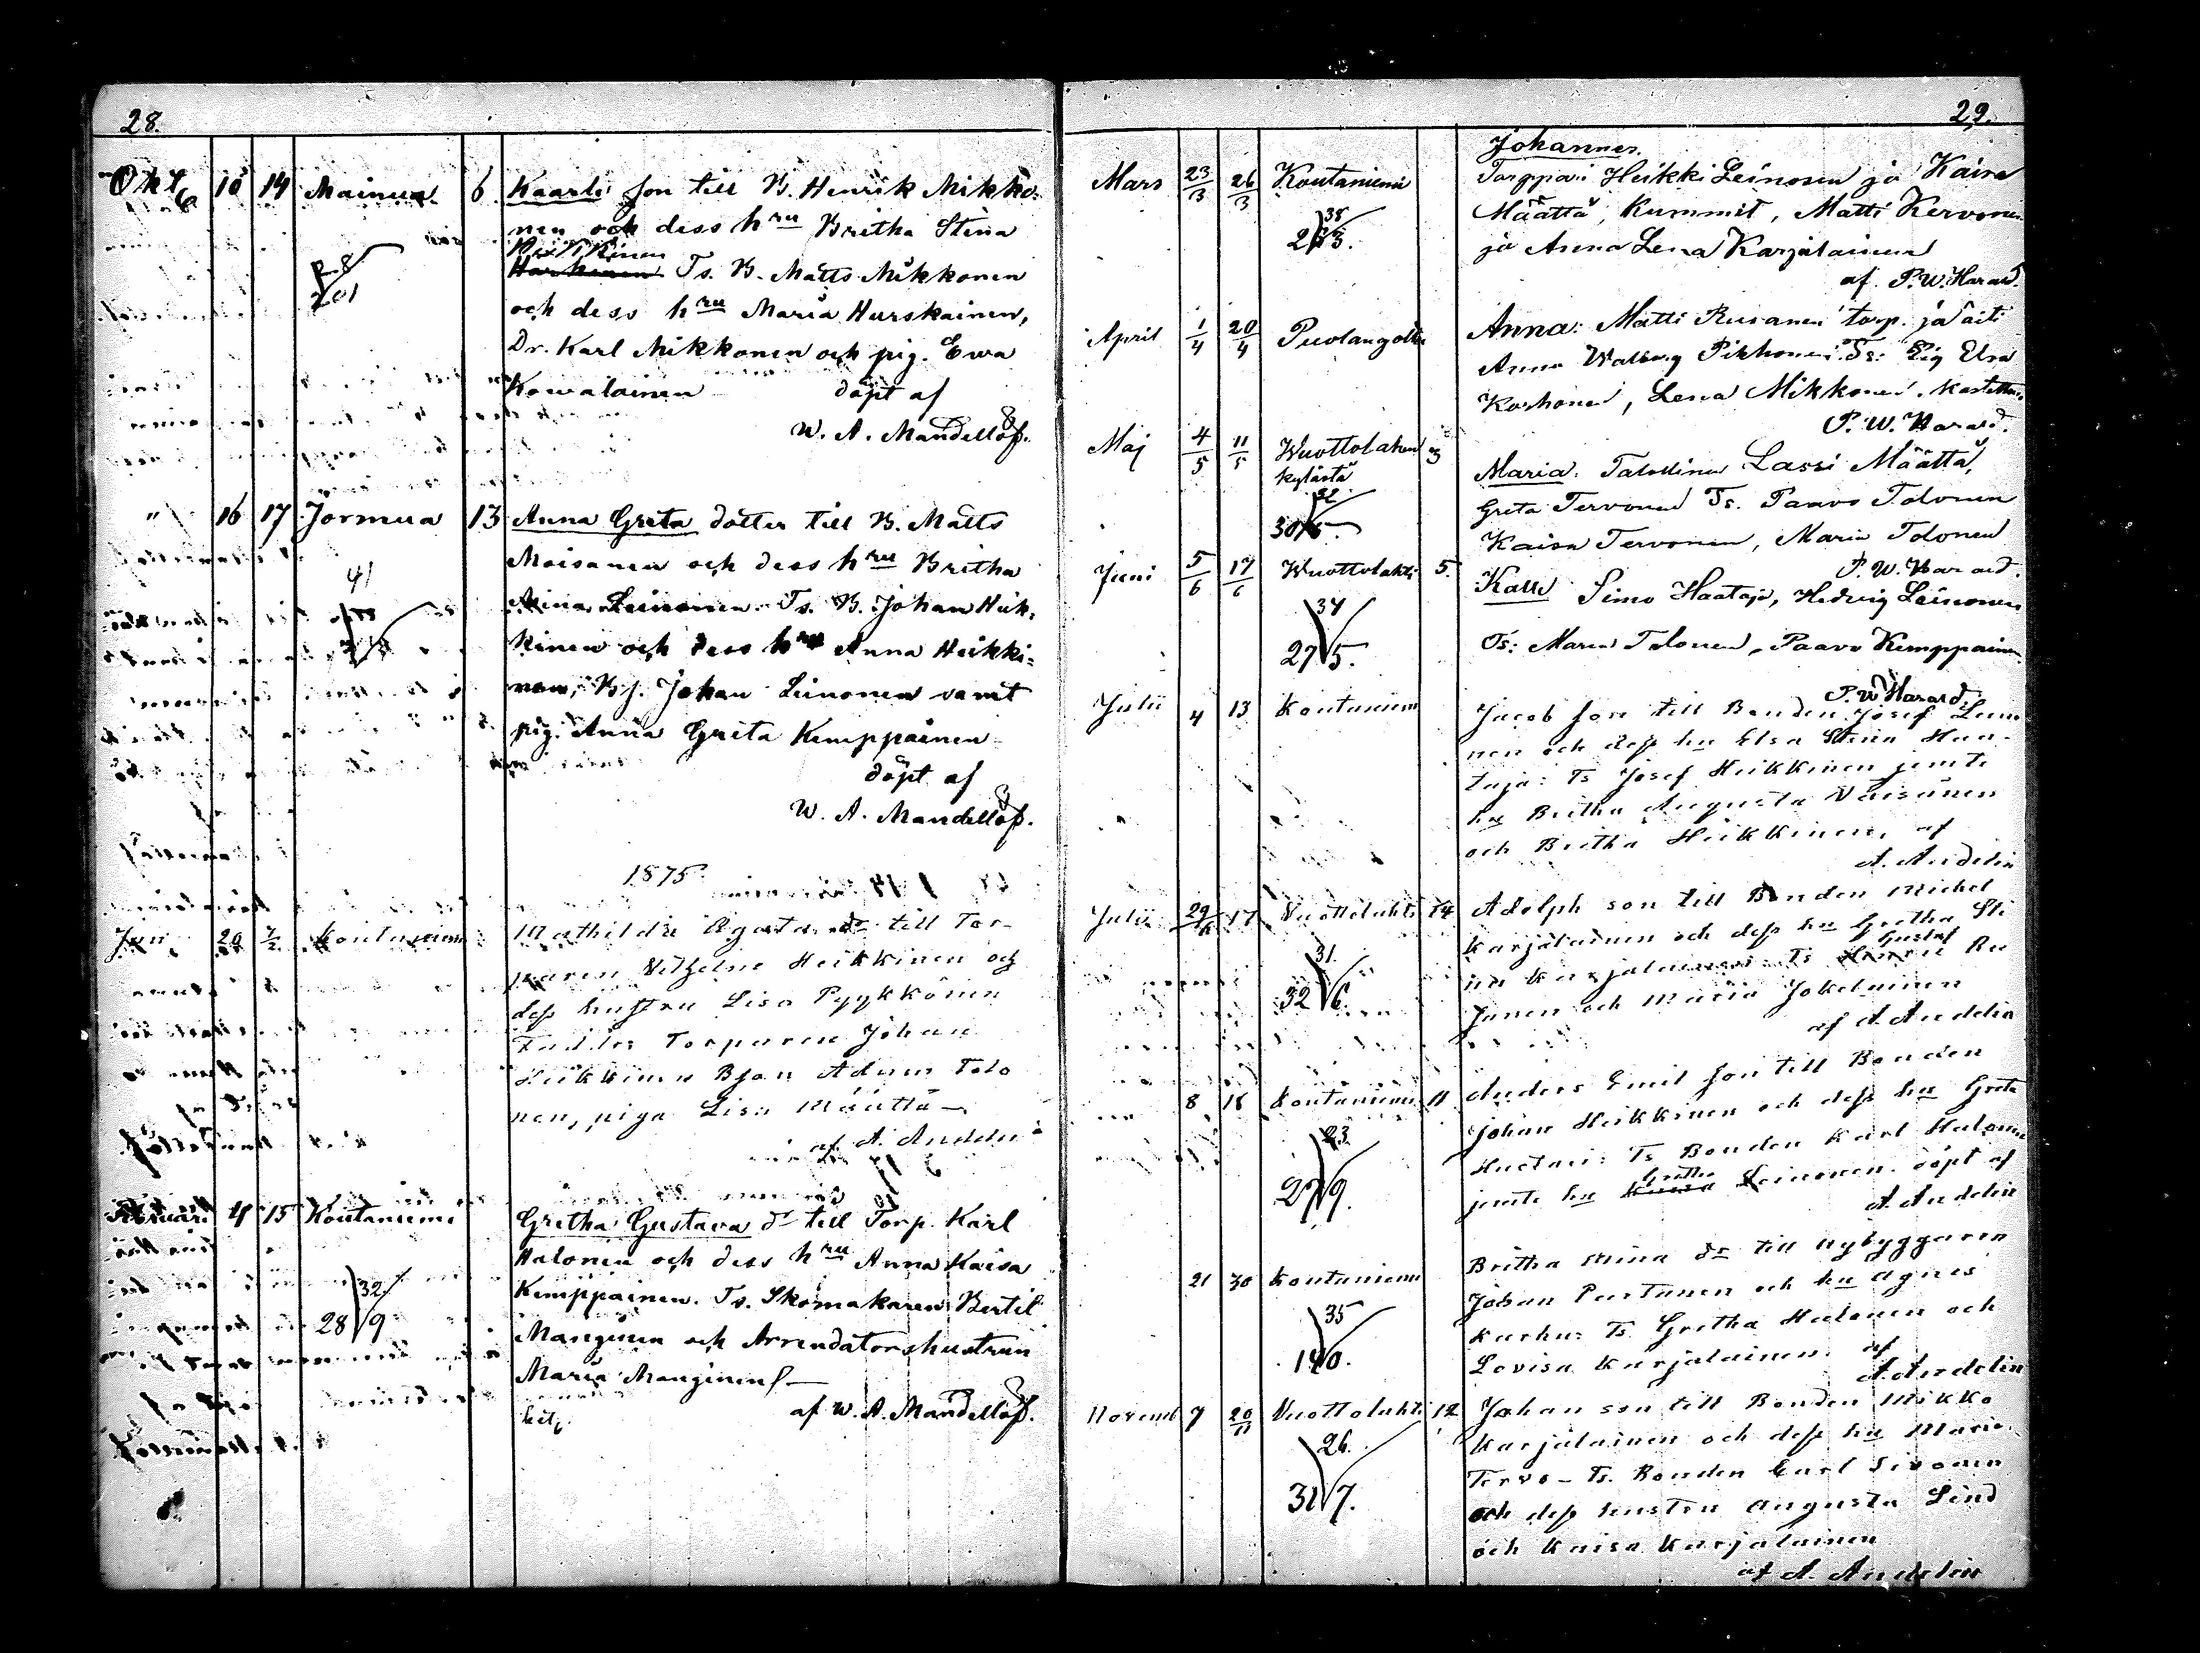 28.
Okt. 10 14 Mainua 6 Kaarle son till B. Henrik Mikko-
nen och dess hru Britha Stina
Harkenen Ts. B. Matts Mikkonen
201
och dess hru Maria Hurskainen,
Dr. Karl Mikkonen och pig. Ewa
Kowalainen döpt af
W. A. Mandellöf.
" 16 17 Jormua 13 Anna Greta dotter till B. Matts
Moisanen och dess hru Britha
41
Leinonen. Ts. B. Johan Heik-
kinen och dess hru Anna Heikki-
nen, Johan Leinonen samt
pig. Anna Greta Kemppainen
döpt af
W. A. Mandellöf.
1875
Jan. 20 7/2 Koutaniemi Mathilda Agata dr till Tor-
paren Vilhelm Heikkinen och
dess hustru Lisa Pyykkönen
Torparen Johan
Heikkinen Bson Adam Tolo
nen, piga Lisa Määttä
af A. Andelin
Februari 4 15 Koutaniemi Gretha Gustava dr till Torp. Karl
Halonen och dess hru Anna Kaisa
32
Kemppainen. Ts. Skomakaren Bertil
28 9
Manginen och Arrendatorshustrun
Maria Manginen
af W. A. Mandellöf.
29.
Johannes.
Mars 23/3 26/3 Koutaniemi Torppari Heikki Leinosen ja Kaisa
Määttä, Kummit, Matti Kervonen
38
ja Anna Lena Karjalainen
af P. W. Harald.
April 1/4 20/4 Puolangolta Anna: Matti Rusanen torp. ja äiti
Anna Walborg Pikkonen. Ts: Elsa
Korhonen, Lena Mikkonen.
P. W. Harald.
Maj 4/5 11/5 Wuottolahen 3
kylästä
Maria: Talollinen Lassi Määttä,
Greta Tervonen Ts. Paavo Tolonen
Kaisa Tervonen, Maria Tolonen
P. W. Harald.
Juni 5/6 17/6 Wuottolahti 5. Kalle Simo Haataja, Hedvig Leinonen
34
27 5.
Ts: Maria Tolonen, Paavo Kemppainen
P. W. Harald.
Julii 4 13 Koutaniemi Jacob son till Bonden Josef Leino
nen och dess hu Elsa Stina Haa-
taja: Ts Josef Heikkinen jemte
hu Britha Augusta Väisänen
och Britha Heikkinen, af
A. Andelin
Julii 29/6 17 Vuottolahti 14 Adolph son till Bonden Michel
Karjalainen och dess hu Gretha Sti
Gustaf
na Karjalainen: Ts Henric Ru
31.
32 6.
sanen och Maria Jokelainen
af A. Andelin
8 18 Koutaniemi 11 Anders Emil son till Bonden
Johan Heikkinen och dess hu Greta
23.
27 9.
Huotari: Ts Bonden Karl Halonen
Gretha
jemte hu Kaisa Leinonen. döpt af
A. Andelin
21 30 Koutaniemi Britha Mina dr till nybyggaren
Johan Partanen och hu Agnes
35
140.
Karhu: Ts Gretha Halonen och
Lovisa Karjalainen. af
A. Andelin
Novemb 7 20/11 Vuottolahti 12 Johan son till Bonden Mikko
Karjalainen och dess hu Maria
26.
31 7.
Tervo - Ts. Bonden Carl Sivonen
och dess hustru Augusta Lind
och Kaisa Karjalainen
af A. Andelin